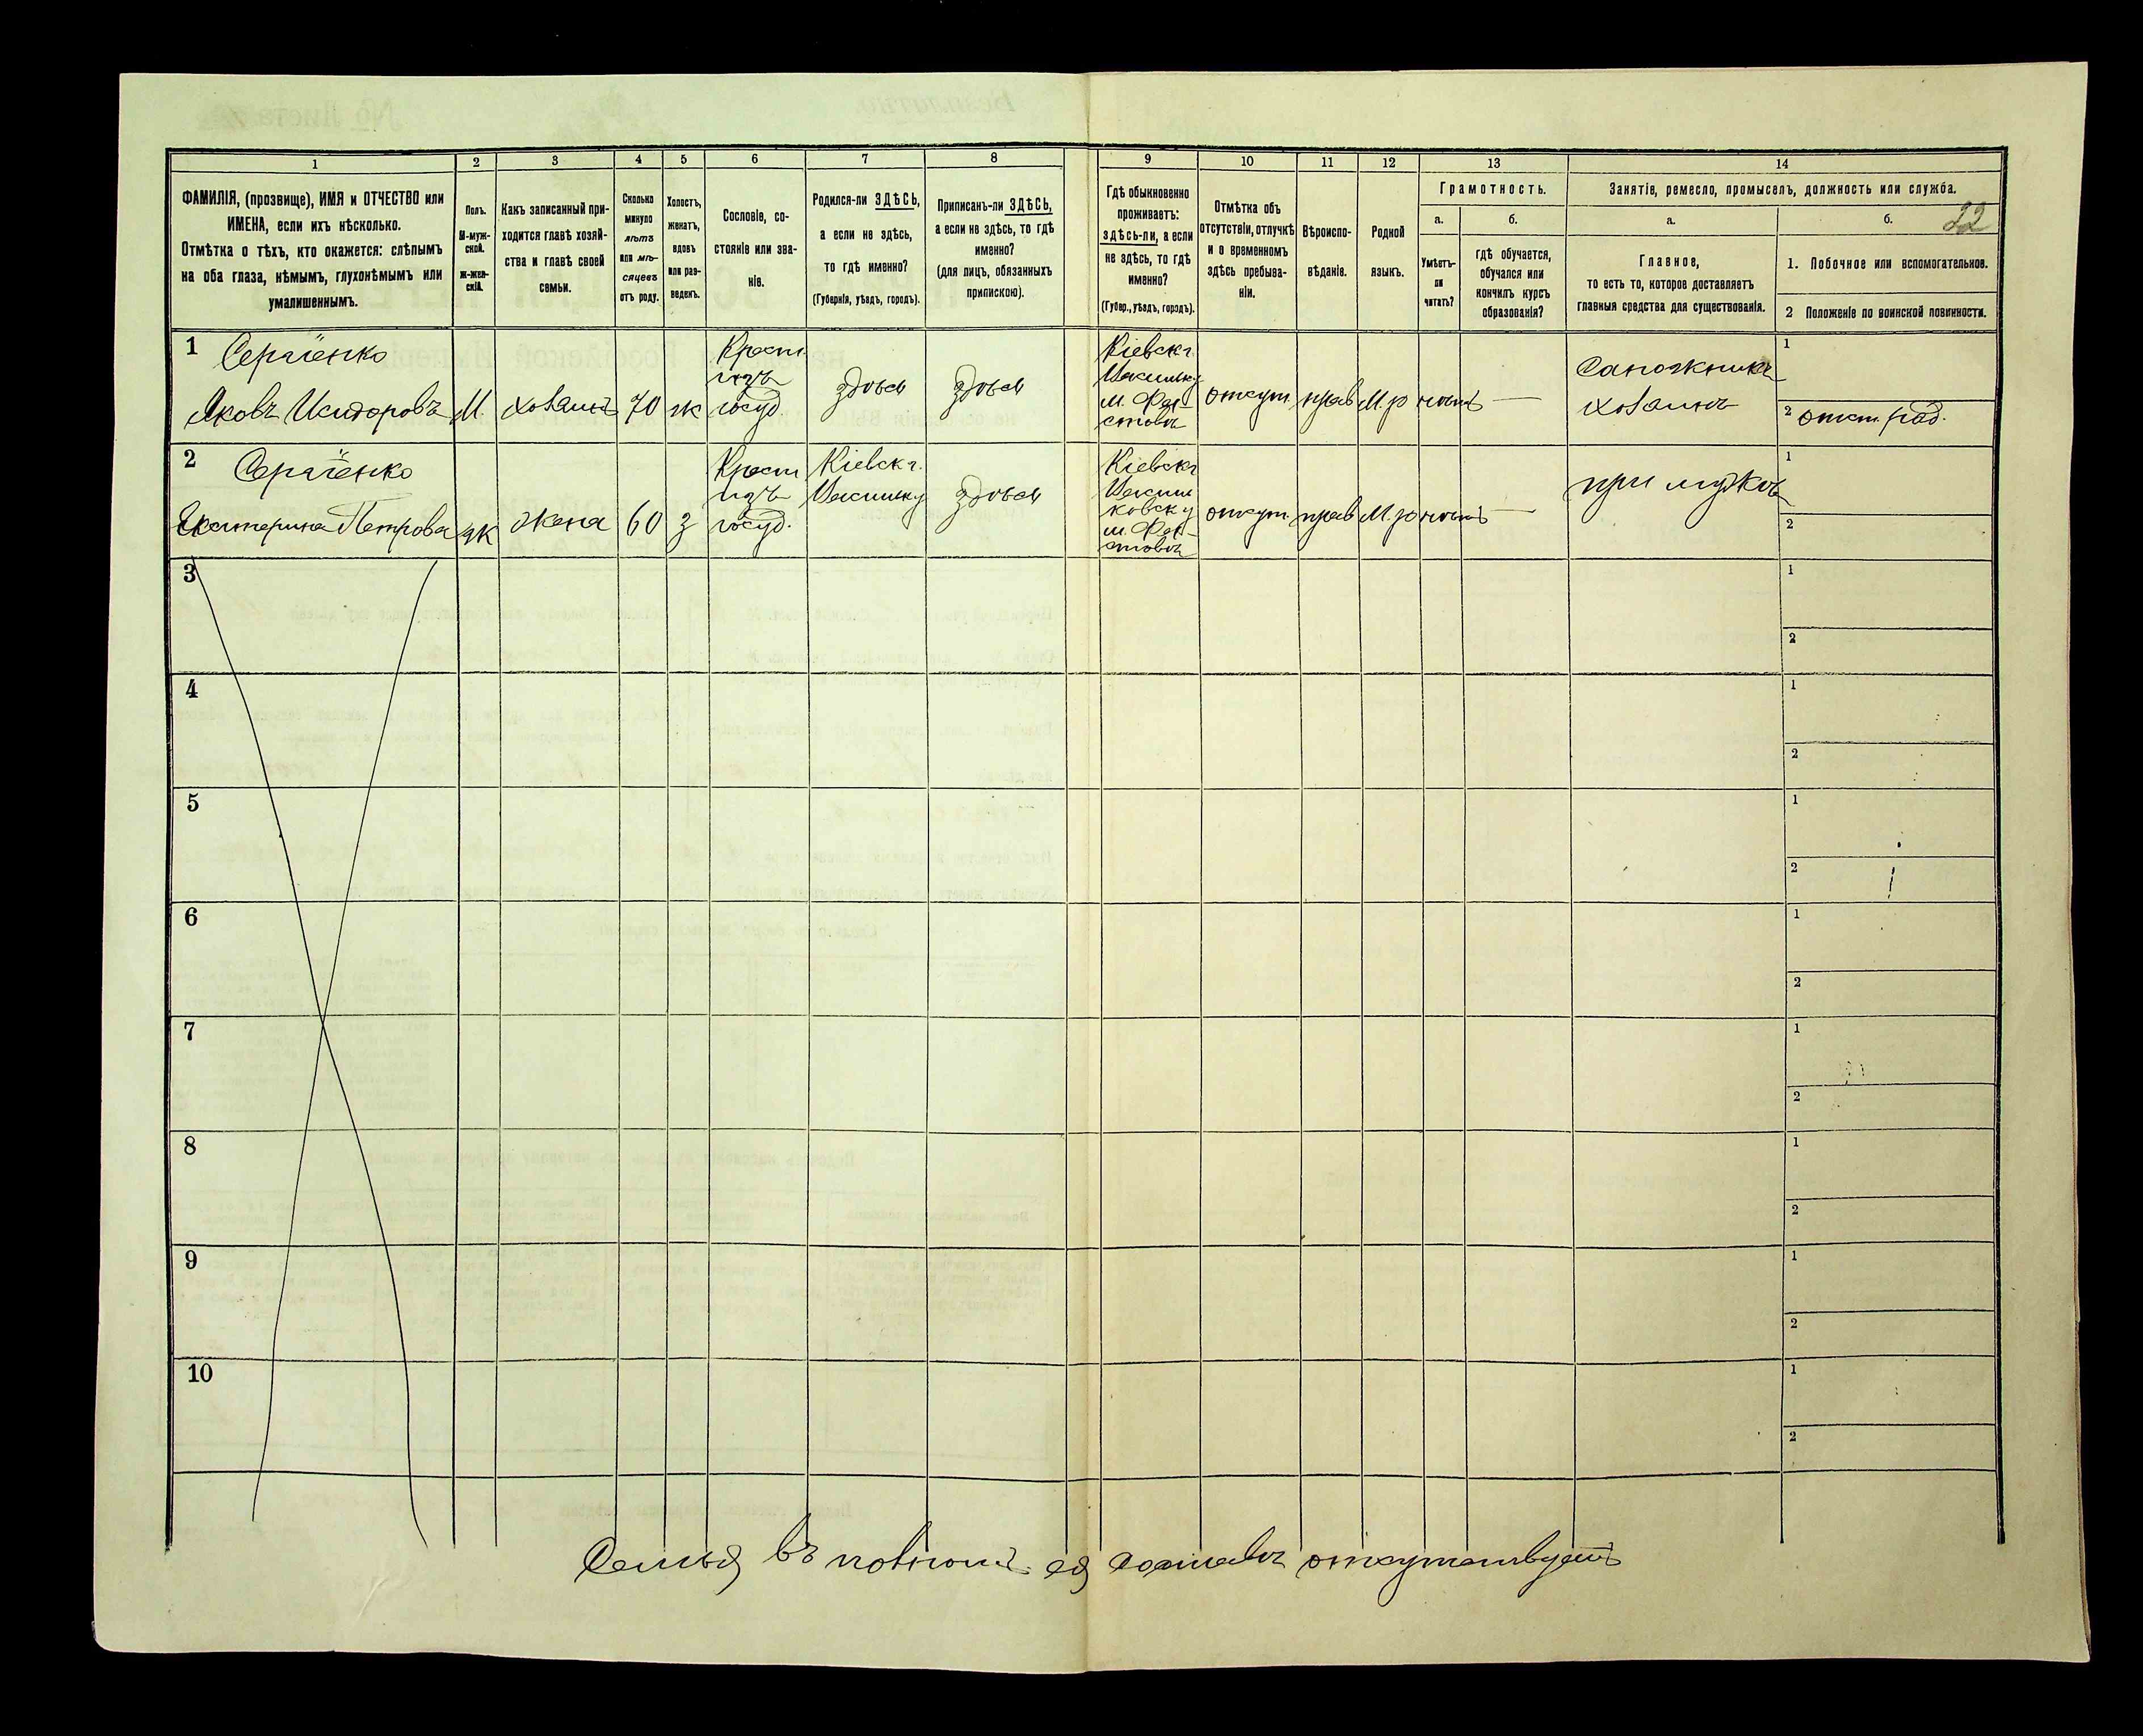 1 2 3 4 5 6 7 8 9 10 11 12 13 14
ФАМИЛІЯ, (прозвище), ИМЯ и ОТЧЕСТВО или
ИМЕНА, если ихъ нѣсколько.
Отмѣтка о тѣхъ, кто окажется: слѣпымъ
на оба глаза, нѣмымъ, глухонѣмымъ или
умалишеннымъ.
Полъ.
М-муж-
ской.
ж-жен-
скій.
Какъ записанный при-
ходится главѣ хозяй-
ства и главѣ своей
семьи.
Сколько
минуло
лѣтъ
или мѣ-
сяцевъ
отъ роду.
Холостъ,
женатъ,
вдовъ
или раз-
веденъ.
Сословіе, со-
стояніе или зва-
ніе.
Родился-ли ЗДѢСЬ,
а если не здѣсь,
то гдѣ именно?
(Губернія, уѣздъ, городъ).
Приписанъ-ли ЗДѢСЬ,
а если не здѣсь, то гдѣ
именно?
(для лицъ, обязанныхъ
припискою).
Гдѣ обыкновенно
проживаетъ:
здѣсь-ли, а если
не здѣсь, то гдѣ
именно?
(Губер., уѣздъ, городъ).
Отмѣтка объ
отсутствіи, отлучкѣ
и о временномъ
здѣсь пребыва-
ніи.
Вѣроиспо-
вѣданіе.
Родной
языкъ.
Грамотность.
а.
Умѣетъ-
ли
читать?
б.
гдѣ обучается,
обучался или
кончилъ курсъ
образованія?
Занятіе, ремесло, промыселъ, должность или служба.
а.
Главное,
то есть то, которое доставляетъ
главныя средства для существованія.
б.
22
1. Побочное или вспомогательное.
2 Положеніе по воинской повинности.
1
Сергіенко
Яковъ Исидоровъ
М.
хозяинъ
70
ж
Крест.
изъ
госуд.
здѣсь
здѣсь
Кіевск г.
м. Фа-
стовъ
отсут.
прав
М. р
—
Сапожникъ
хозяинъ
1
2
2
Сергіенко
Екатерина Петрова
ж
жена
60
з
Крест
изъ
госуд.
Кіевск г.
здѣсь
Кіевск г
м. Фа-
стовъ
отсут.
прав
М. р
—
при мужѣ
1
2
3
1
2
4
1
2
5
1
2
6
1
2
7
1
2
8
1
2
9
1
2
10
1
2
Семья въ полномъ ея составѣ отсутствуетъ